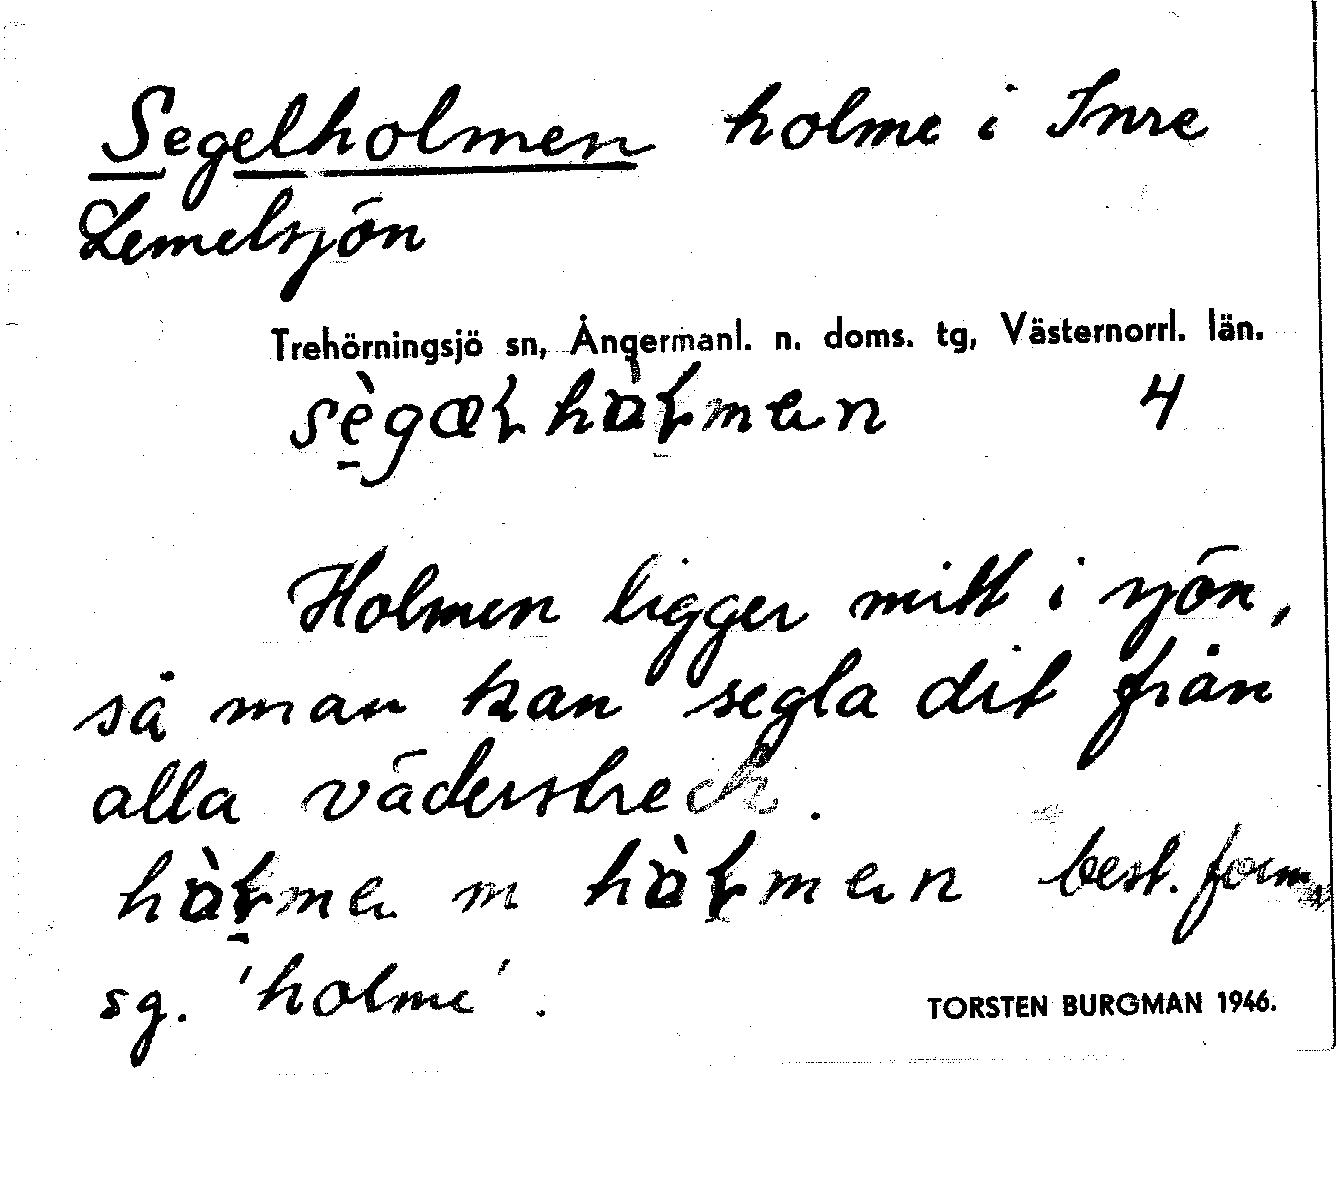 Segelholmen holme i Inre
Lemelsjön
Trehörningsjö sn, Ångermanl. n. doms. tg, Västernorrl. län.
4
Holmen ligger mitt i sjön,
så man kan segla dit från
alla väderstreck.
m best. form
sg. 'holme'.
TORSTEN BURGMAN 1946.